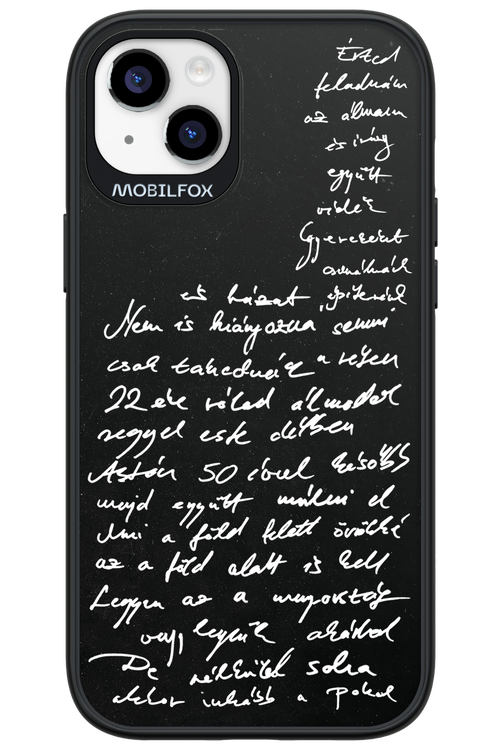 MOBILFOX
Érted
feladnám
az álmaim
és irány
együtt
vidék
Gyerekeket
csinálnánk
és házat építenénk
Nem is hiányozna semmi
csak takednánk a réten
22 éve rólad álmodok
reggel este délben
Aztán 50 évvel később
majd együtt múlni el
Ami a föld felett örökké
az a föld alatt is kell
Legyen az a mennyország
vagy legyünk akárhol
De nélküled soha
akkor inkább a pokol